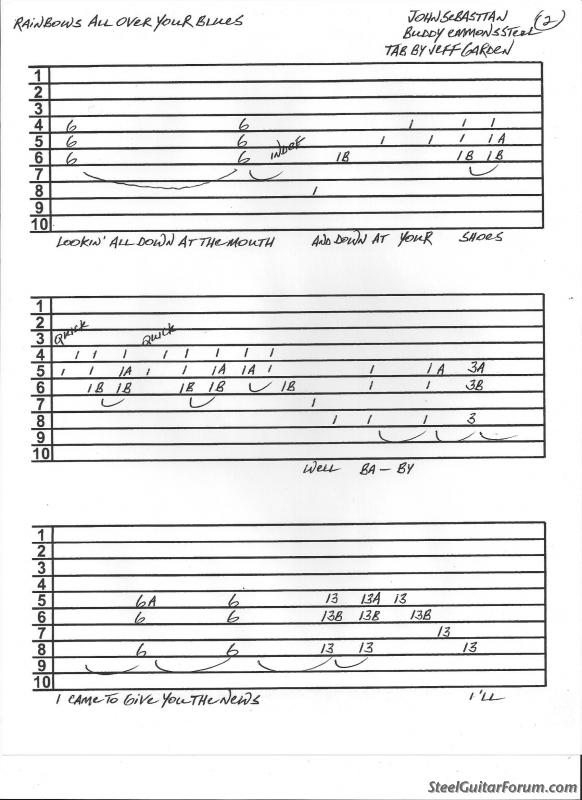 RAINBOWS ALL OVER YOUR BLUES
JOHN SEBASTIAN (2)
BUDDY EMMONS STEEL
TAB BY JEFF GARDEN
1
2
3
4 6 6 1 1 1
5 6 6 1 1 1 1A
6 6 6 1B 1B 1B
7
8 1
9
10
LOOKIN' ALL DOWN AT THE MOUTH AND DOWN AT YOUR SHOES
1
2
QUICK QUICK
3
4 1 1 1 1 1 1 1 1
5 1 1 1A 1 1 1A 1A 1 1 1A 3A
6 1B 1B 1B 1B 1B 1 1 3B
7 1
8 1 1 1 3
9
10
WELL BA - BY
1
2
3
4
5 6A 6 13 13A 13
6 6 6 13B 13B 13B
7 13
8 6 6 13 13 13
9
10
I CAME TO GIVE YOU THE NEWS I'LL
SteelGuitarForum.com